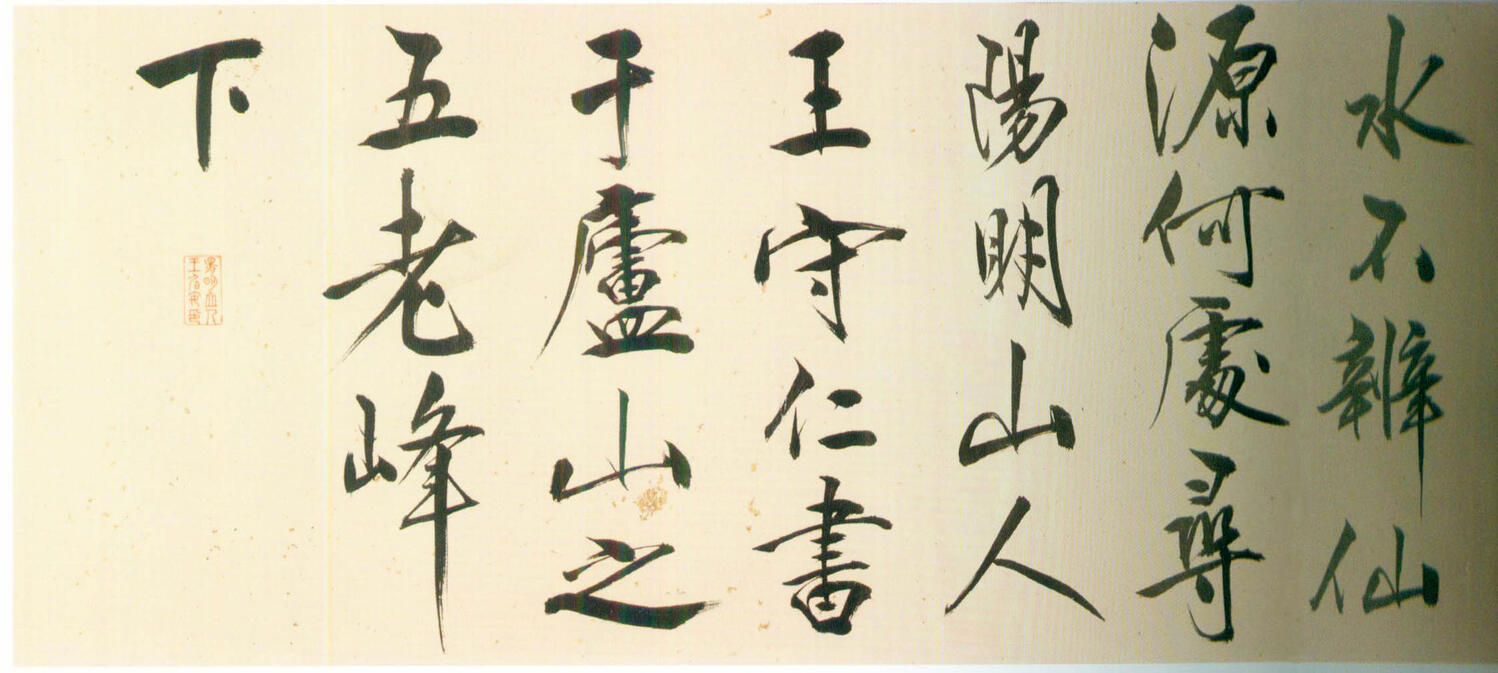 水不辨仙
源何處尋
陽明山人
王守仁書
于廬山之
五老峰
下